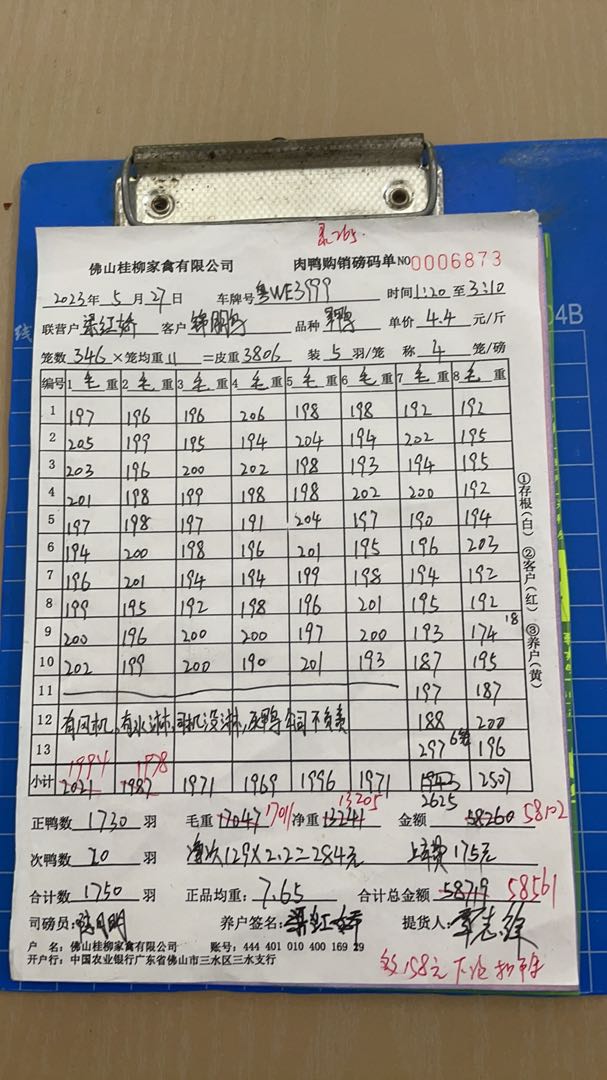 佛山桂柳家禽有限公司 肉鸭购销磅码单NO0006873
2023年 5 月 27 日 车牌号 粤WE3999 时间 1:20 至 3:10
联营户 梁江娇 客户 品种 单价 4.4 元/斤
笼数 346 ×笼均重 11 =皮重 3806 装 5 羽/笼 称 4 笼/磅
编号 1 毛 重 2 毛 重 3 毛 重 4 毛 重 5 毛 重 6 毛 重 7 毛 重 8 毛 重
1 197 196 196 206 198 198 192 192
2 205 199 195 194 204 194 202 195
3 203 196 200 202 198 193 194 195
4 201 198 199 198 198 202 200 192
5 197 198 197 191 204 197 190 194
6 194 200 198 196 201 195 196 203
7 196 201 194 194 199 198 194 192
8 199 195 192 198 196 201 195 192
9 200 196 200 200 197 200 193 174 18
10 202 199 200 190 201 193 187 195
11 197 187
12 有风机,有水淋,司机没淋,死鸭公司不负责 188 200
13 297 6笼 196
1994 1978
小计 2021 1987 1971 1969 1996 1971 1943 2507
2625
正鸭数 1730 羽 毛重 17047 17011 净重 13241 13205 金额 58260 58102
次鸭数 20 羽 净次129×2.2=284元 上车费175元
合计数 1750 羽 正品均重: 7.65 合计总金额 58719 58561
司磅员: 养户签名: 梁江娇 提货人:
户 名: 佛山桂柳家禽有限公司 账号: 444 401 010 400 169 29
开户行: 中国农业银行广东省佛山市三水区三水支行
158元下次扣
①存根(白) ②客户(红) ③养户(黄)
04B